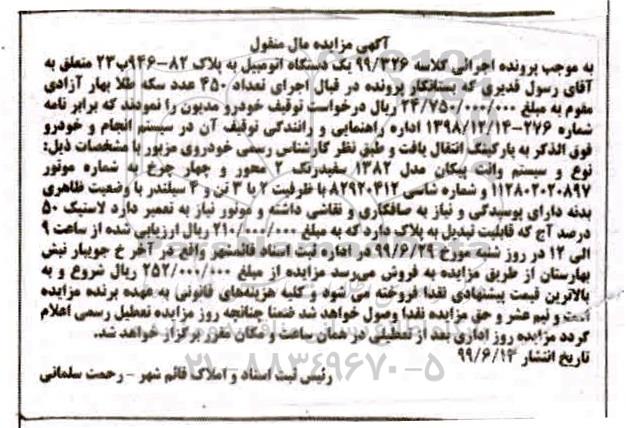 آگهی مزایده مال منقول
به موجب پرونده اجرائی کلاسه ۹۹/۳۲۶ یک دستگاه اتومبیل به پلاک ۸۲-۹۴۶پ۲۳ متعلق به
آقای رسول قدیری که بستانکار پرونده در قبال اجرای تعداد ۴۵۰ عدد سکه طلا بهار آزادی
مقوم به مبلغ ۲۴/۷۵۰/۰۰۰/۰۰۰ ریال درخواست توقیف خودرو مدیون را نمودند که برابر نامه
شماره ۲۷۶-۱۳۹۸/۱۲/۱۴ اداره راهنمایی و رانندگی توقیف آن در سیستم انجام و خودرو
فوق الذکر به پارکینگ انتقال یافت و طبق نظر کارشناس رسمی خودروی مزبور با مشخصات ذیل:
نوع و سیستم وانت پیکان مدل ۱۳۸۲ سفیدرنگ ۲ محور و چهار چرخ به شماره موتور
۱۱۲۸۰۲۰۲۰۸۹۷ و شماره شاسی ۸۲۹۲۰۴۱۲ با ظرفیت ۲ یا ۳ تن و ۴ سیلندر با وضعیت ظاهری
بدنه دارای پوسیدگی و نیاز به صافکاری و نقاشی داشته و موتور نیاز به تعمیر دارد لاستیک ۵۰
درصد آج که قابلیت تبدیل به پلاک دارد که به مبلغ ۲۱۰/۰۰۰/۰۰۰ ریال ارزیابی شده از ساعت ۹
الی ۱۲ در روز شنبه مورخ ۹۹/۶/۲۹ در اداره ثبت اسناد قائمشهر واقع در آخر خ جویبار نبش
بهارستان از طریق مزایده به فروش می‌رسد مزایده از مبلغ ۲۵۲/۰۰۰/۰۰۰ ریال شروع و به
بالاترین قیمت پیشنهادی نقدا فروخته می شود و کلیه هزینه‌های قانونی به عهده برنده مزایده
است و نیم عشر و حق مزایده نقدا وصول خواهد شد ضمنا چنانچه روز مزایده تعطیل رسمی اعلام
گردد مزایده روز اداری بعد از تعطیلی در همان ساعت و مکان مقرر برگزار خواهد شد.
تاریخ انتشار ۹۹/۶/۱۳
رئیس ثبت اسناد و املاک قائم شهر - رحمت سلمانی
۰۲۱-۸۸۳۴۹۶۷۰-۵